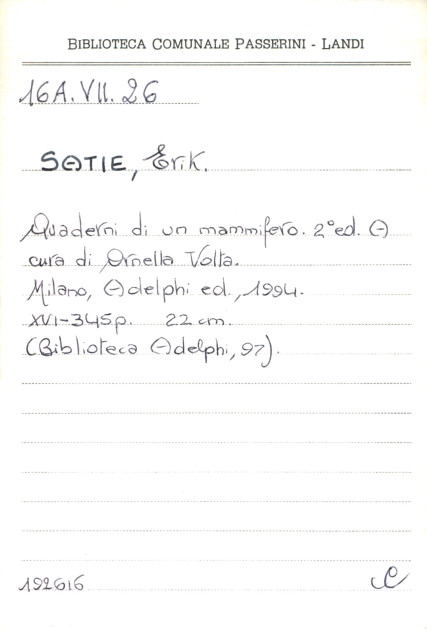 BIBLIOTECA COMUNALE PASSERINI - LANDI
16A.VII.26
SATIE, Erik.
Quaderni di un mammifero. 2°ed. A
cura di Ornella Volta.
Milano, Adelphi ed., 1994.
XVI-345p. 22 cm.
(Biblioteca Adelphi, 97).
192616